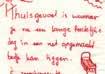 Thuisgevoel is wanneer
je na een lange feestelijke
dag in een net opgemaakt
bedje kan liggen.